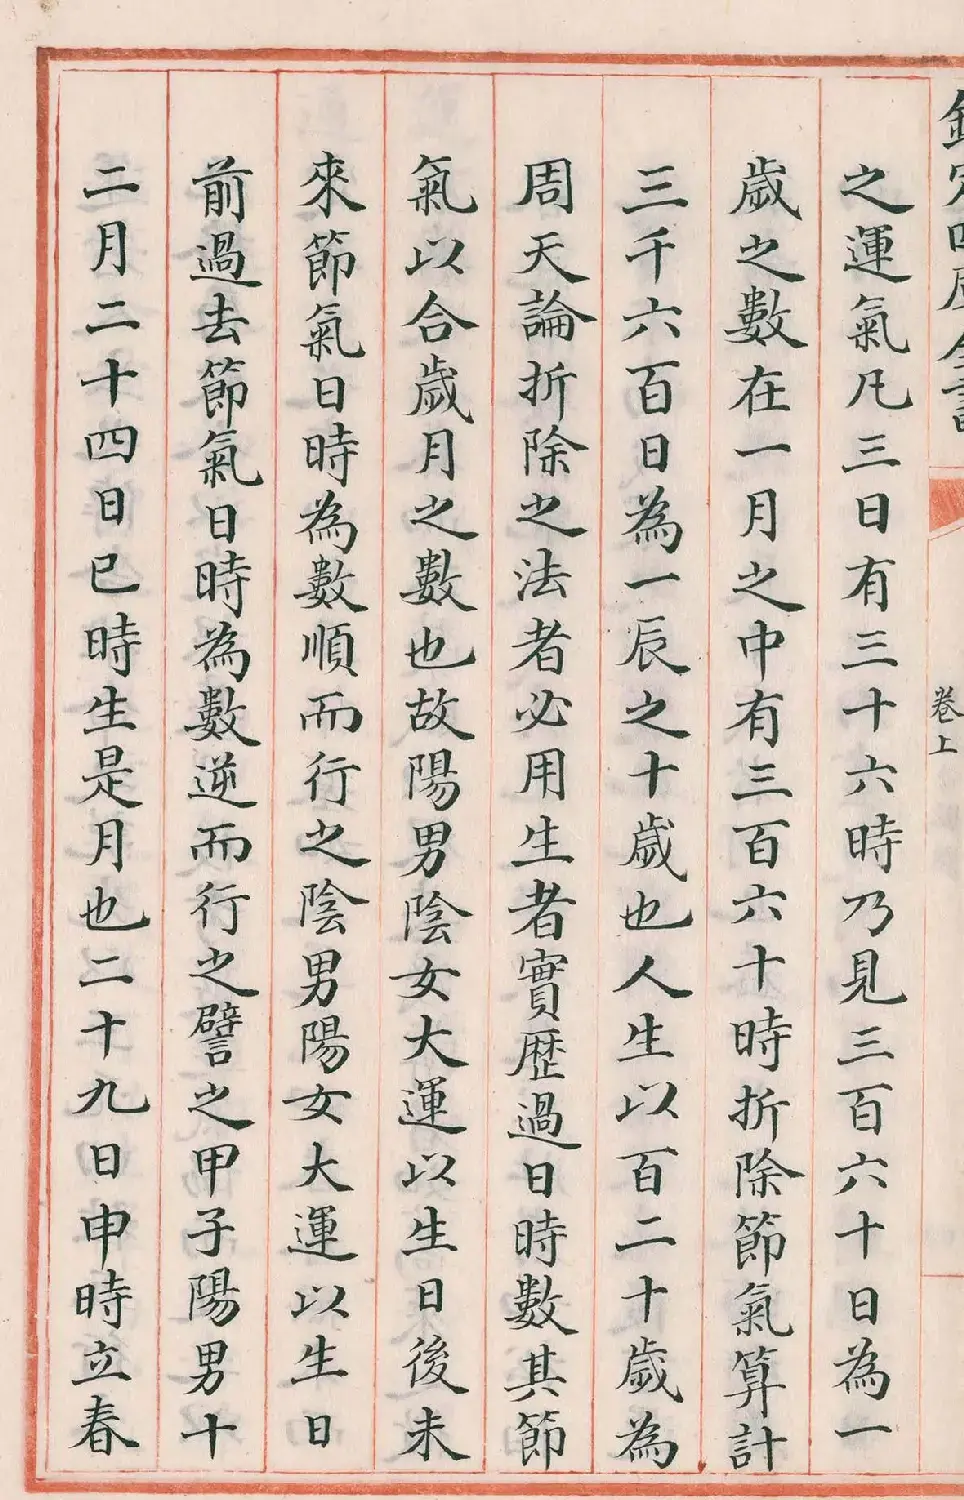 欽定四庫全書
卷上
之運氣凡三日有三十六時乃見三百六十日為一
歲之數在一月之中有三百六十時折除節氣算計
三千六百日為一辰之十歲也人生以百二十歲為
周天論折除之法者必用生者實歴過日時數其節
氣以合歲月之數也故陽男陰女大運以生日後未
來節氣日時為數順而行之陰男陽女大運以生日
前過去節氣日時為數逆而行之譬之甲子陽男十
二月二十四日巳時生是月也二十九日申時立春